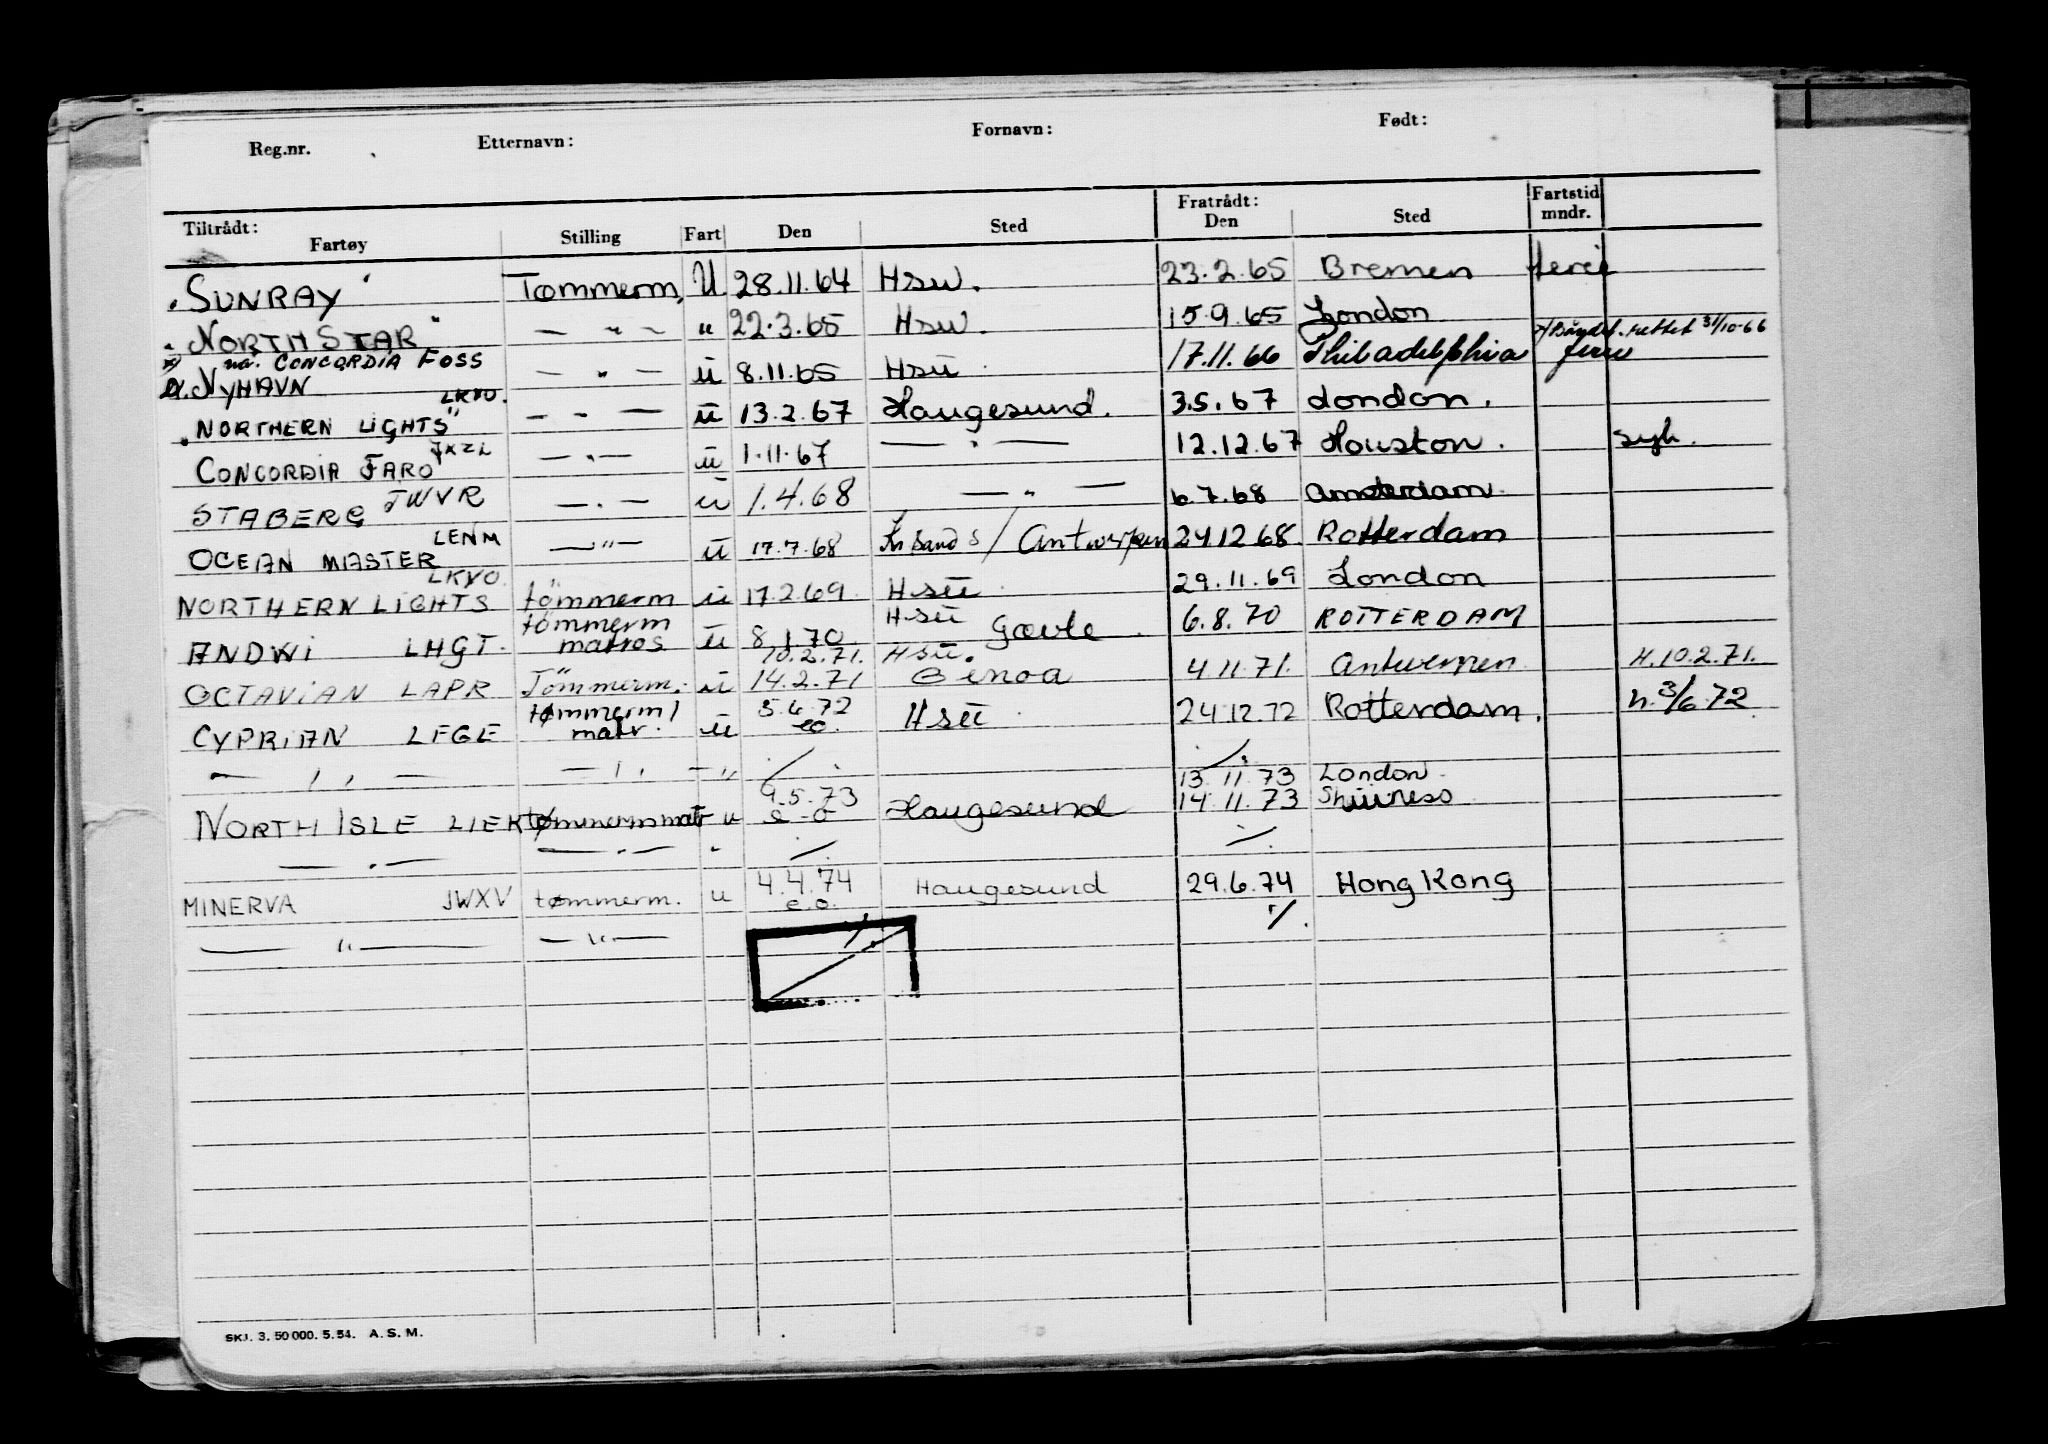 Reg.nr. Etternavn: Fornavn: Født:
Tiltrådt: Fratrådt: Fartstid
Fartøy Stilling Fart Den Sted Den Sted mndr.
"SUNRAY" Tømmerm. U 28.11.64 Hsu. 23.2.65 Bremen ferie
"NORTH STAR" — " — " 22.3.65 Hsu. 15.9.65 London
x) nå. CONCORDIA FOSS x) rettet 31/10-66
NYHAVN — " — ü 8.11.65 Hsü 17.11.66 Philadelphia ferie
"NORTHERN LIGHTS" LKVO. — " — ü 13.2.67 Haugesund. 3.5.67 London.
CONCORDIA FARO JXZL — " — ü 1.11.67 — " — 12.12.67 Houston. syk.
STABERG JWVR — " — ü 1.4.68 — " — 6.7.68 Amsterdam.
OCEAN MASTER LENM — " — ü 17.7.68 Kr.sand S/Antwerpen 24.12.68. Rotterdam
NORTHERN LIGHTS LKVO. tömmerm ü 17.2.69. Hsü 29.11.69 London
ANDWI LHGT. tömmerm matros ü 8.1.70. Hsü Gävle 6.8.70 ROTTERDAM
10.2.71. Hsü.
OCTAVIAN LAPR Tömmerm. ü 14.2.71 Genoa 4.11.71. Antwerpen H.10.2.71.
CYPRIAN LEGE tømmerm/matr. ü 5.6.72 eo. Hsü 24.12.72 Rotterdam. h. 3/6.72
— " — — " — — " ./. ./.
13.11.73 London.
NORTH ISLE LIEK tømmermmatr u 9.5.73 e-o Haugesund 14.11.73
— " — — " — " ./. ./.
MINERVA JWXV tømmerm. u 4.4.74 e.o. Haugesund 29.6.74 Hong Kong
— " — — " — ./. ./.
SKJ. 3. 50 000. 5. 54. A. S. M.